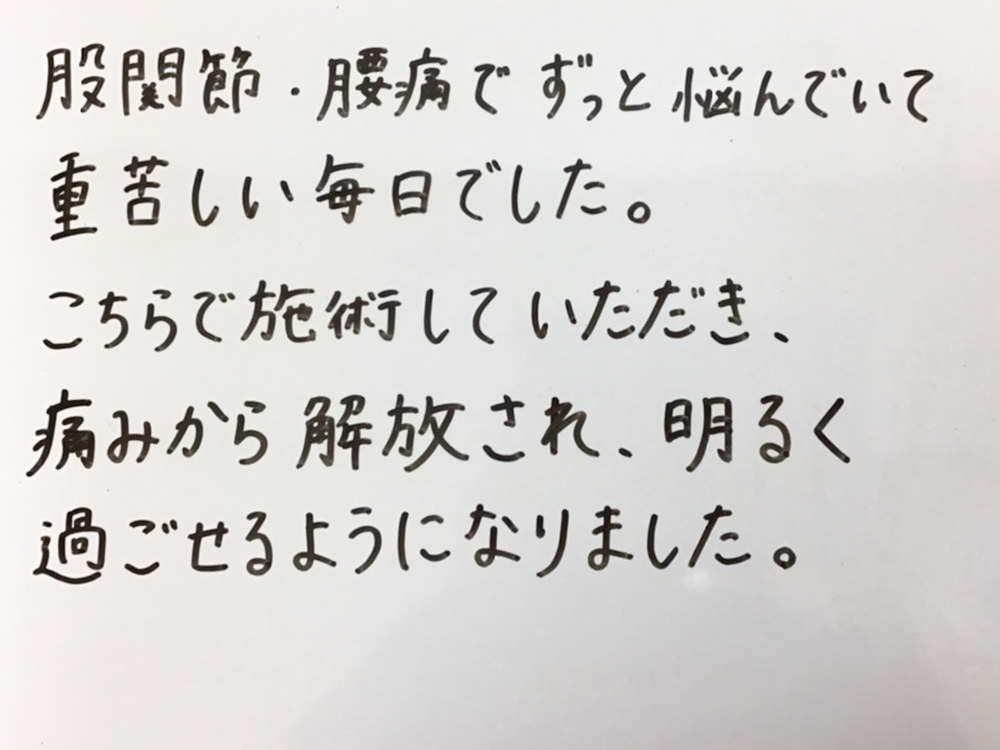 股関節・腰痛でずっと悩んでいて
重苦しい毎日でした。
こちらで施術していただき、
痛みから解放され、明るく
過ごせるようになりました。